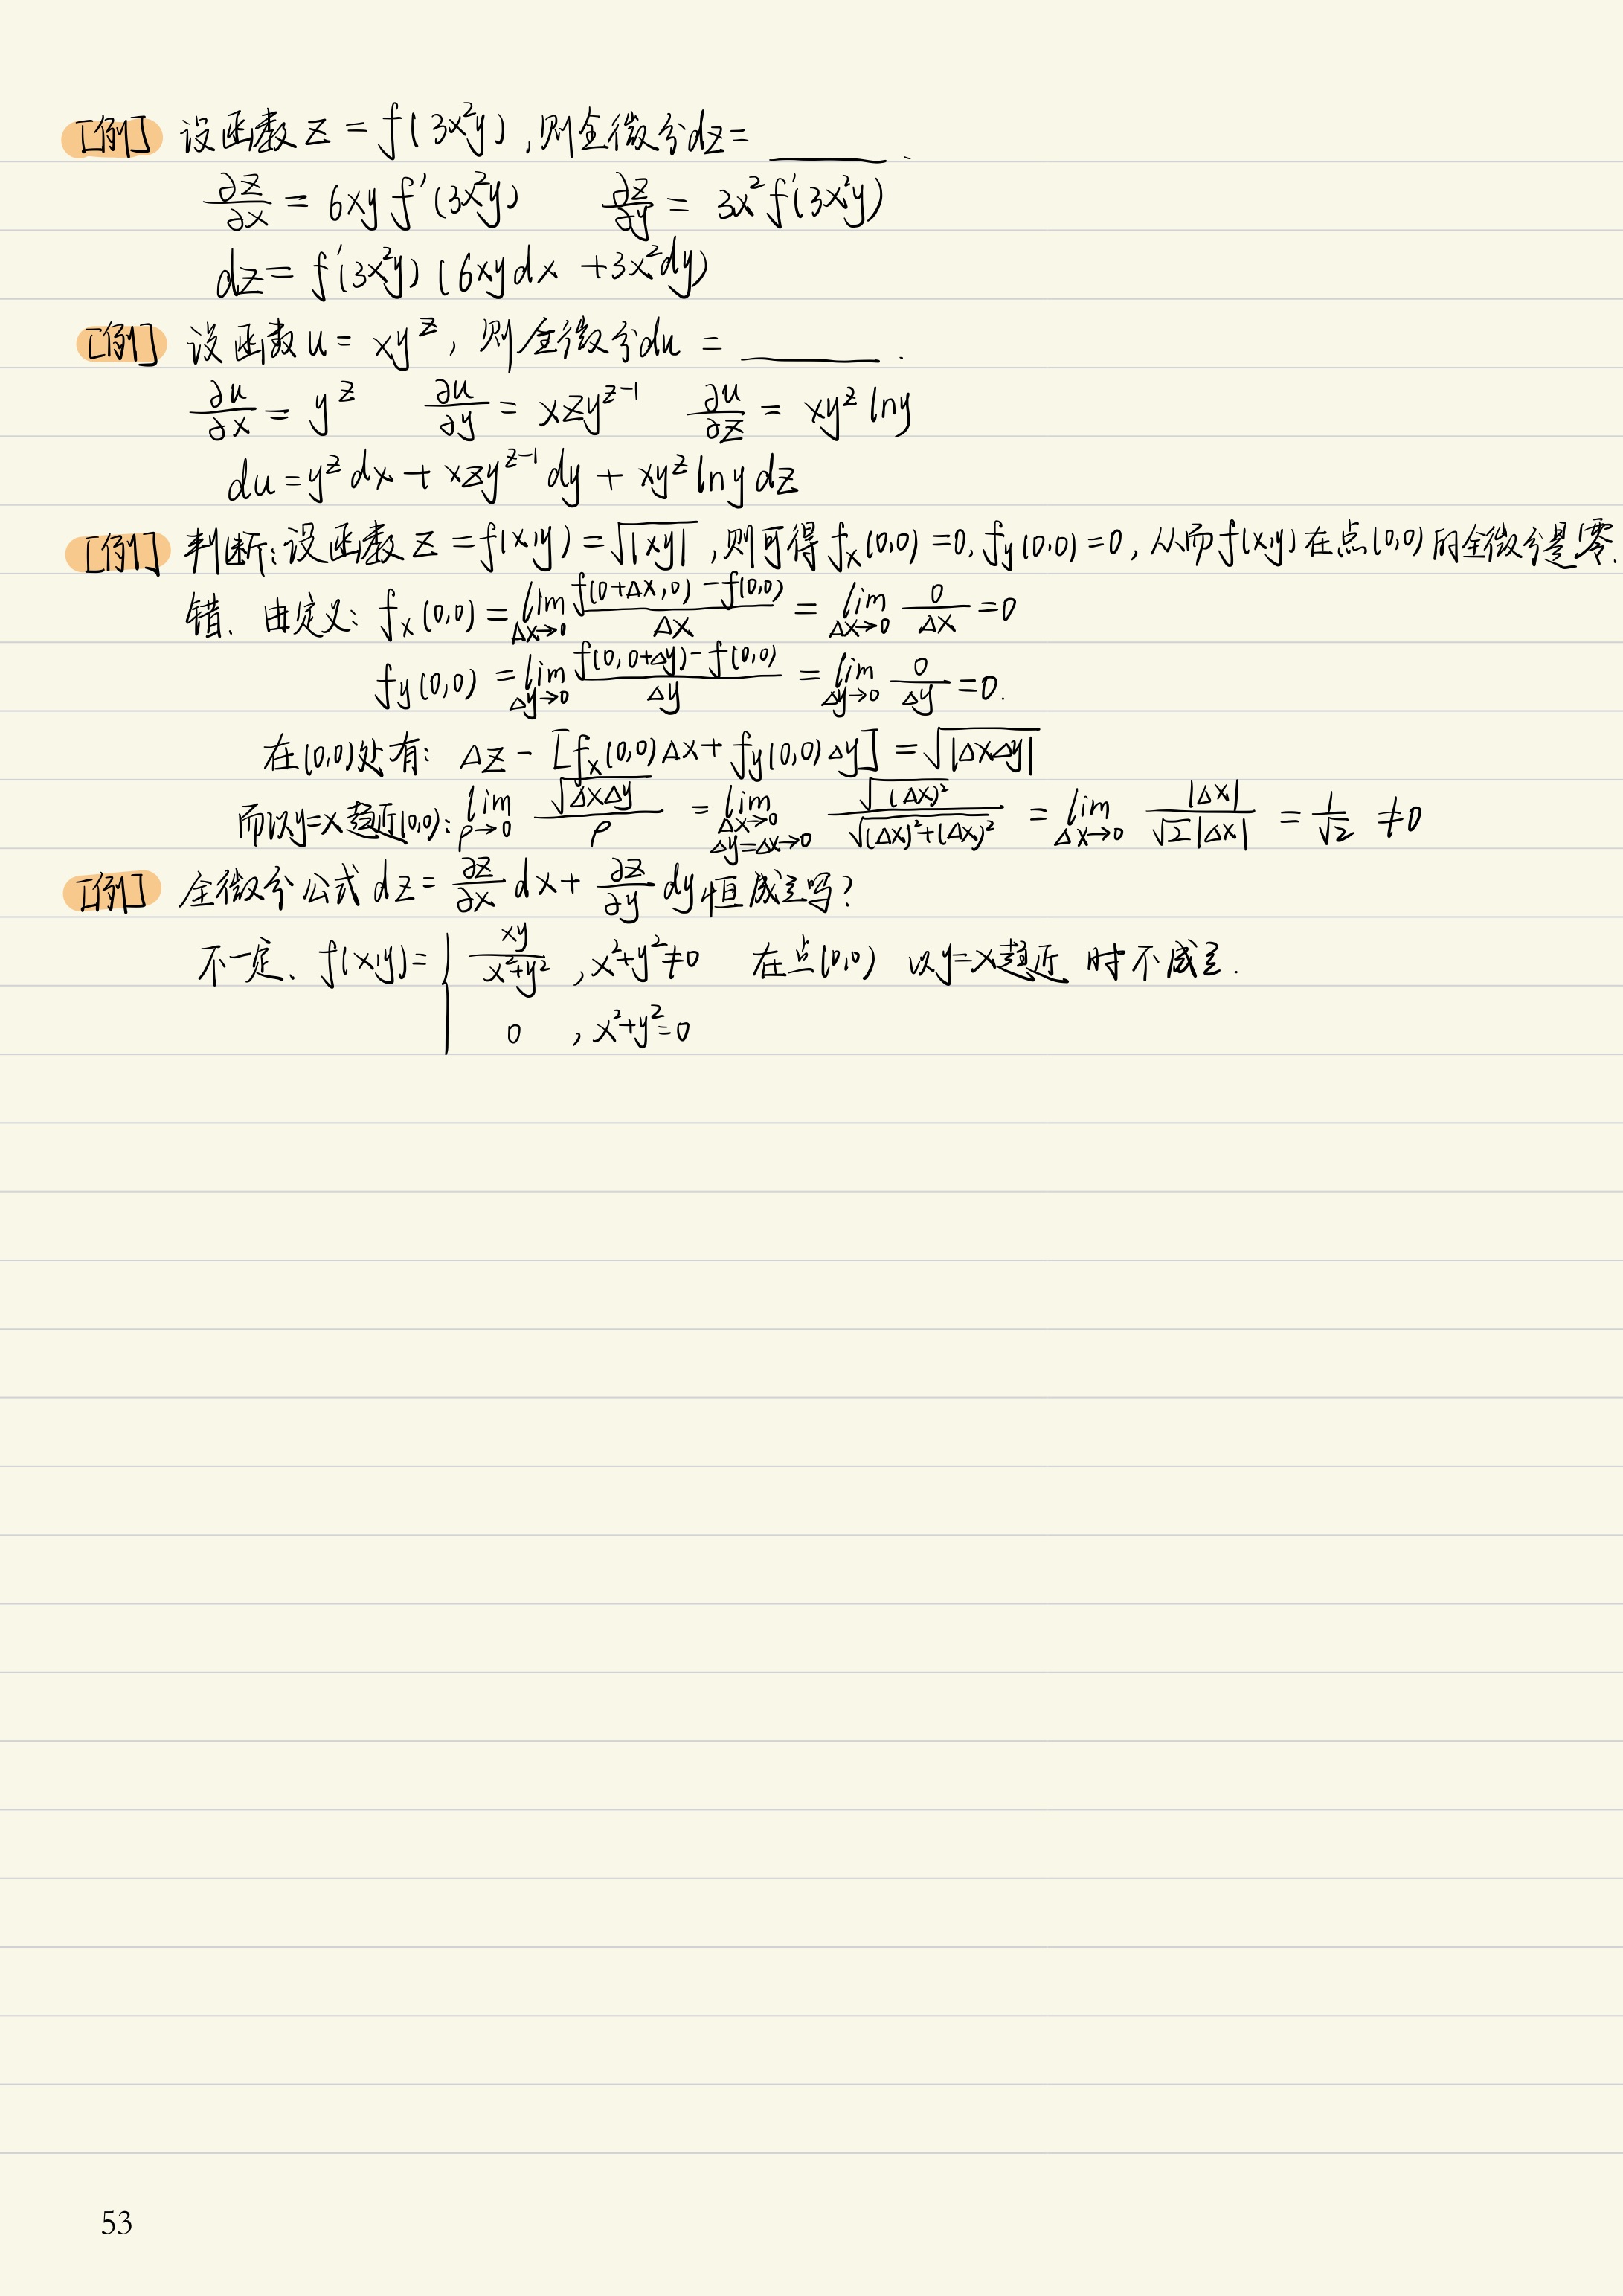 [例] 设函数 z = f(3x²y), 则全微分dz= ______.
∂z/∂x = 6xy f′(3x²y)  ∂z/∂y = 3x² f′(3x²y)
dz = f′(3x²y) (6xydx + 3x²dy)
[例] 设函数 u = xy^z, 则全微分du = ______.
∂u/∂x = y^z  ∂u/∂y = xzy^(z-1)  ∂u/∂z = xy^z lny
du = y^z dx + xzy^(z-1) dy + xy^z lny dz
[例] 判断:设函数 z = f(x,y) = √|xy|, 则可得 f_x(0,0) = 0, f_y(0,0) = 0, 从而 f(x,y) 在点(0,0) 的全微分是零.
错. 由定义: f_x(0,0) = lim_(Δx→0) (f(0+Δx,0) - f(0,0))/Δx = lim_(Δx→0) 0/Δx = 0
f_y(0,0) = lim_(Δy→0) (f(0,0+Δy) - f(0,0))/Δy = lim_(Δy→0) 0/Δy = 0.
在(0,0)处有: Δz - [f_x(0,0)Δx + f_y(0,0)Δy] = √|ΔxΔy|
而以y=x趋近(0,0): lim_(ρ→0) √(ΔxΔy)/ρ = lim_(Δx→0 Δy=Δx→0) √(Δx)²/√((Δx)²+(Δx)²) = lim_(Δx→0) |Δx|/(√2|Δx|) = 1/√2 ≠ 0
[例] 全微分公式 dz = ∂z/∂x dx + ∂z/∂y dy 恒成立吗?
不一定. f(x,y) = { xy/(x²+y²) , x²+y²≠0  在点(0,0) 以y=x趋近 时不成立.
0 , x²+y²=0
53